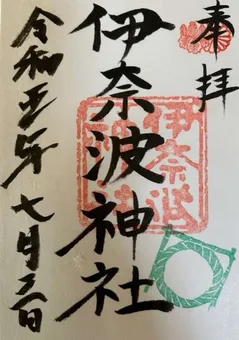 奉拝
伊奈波神社
伊奈波
神社
令和五年七月